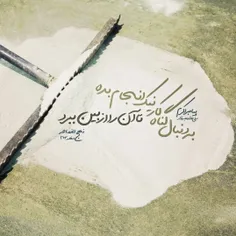 پیامبر اکرم
به دنبال گناه کار نیک انجام بده
تا آن را از بین ببرد
نهج الفصاحه